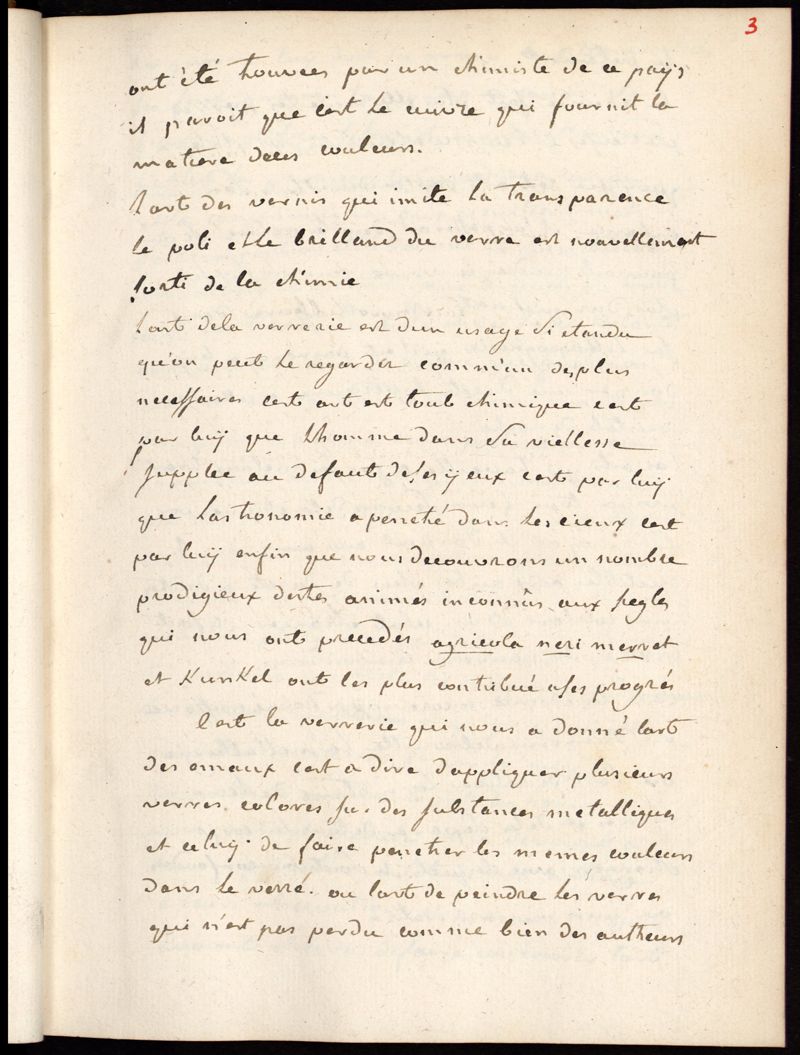 3
ont été trouvées par un chimiste de ce pays
il paroit que cest le cuivre qui fournit la
matiere deces couleurs.
Lart des vernis qui imite la transparence
le poli et le brilland du verre est nouvellement
sorti de la chimie
Lart dela verrerie est dun usage si etandu
qu'on peut le regarder comm'un des plus
necessaires cest art est tout chimique cest
par luy que Lhomme dans sa viellesse
supplee au defaut de ses yeux cest par luy
que Lastronomie a penetré dans les cieux cest
par luy enfin que nous decouvrons un nombre
prodigieux destes animés inconnûs aux siegles
qui nous ont precedés agricola neri merret
et Kunkel ont les plus contribué a ses progrés
Cest la verrerie qui nous a donné lart
des emaux cest a dire dappliquer plusieurs
verres colores sur des substances metalliques
et celuy de faire penetrer les memes couleurs
dans le verre. ou lart de peindre les verres
qui n'est pas perdu comme bien des autheurs